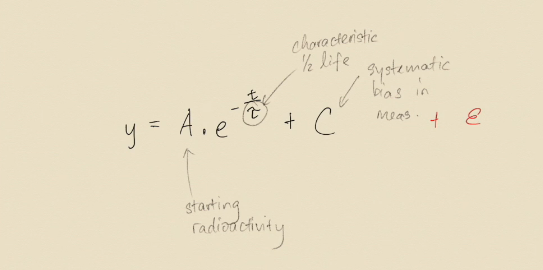 characteristic
½ life
systematic
bias in
meas.
y = A . e^(-t/τ) + C + ε
starting
radioactivity